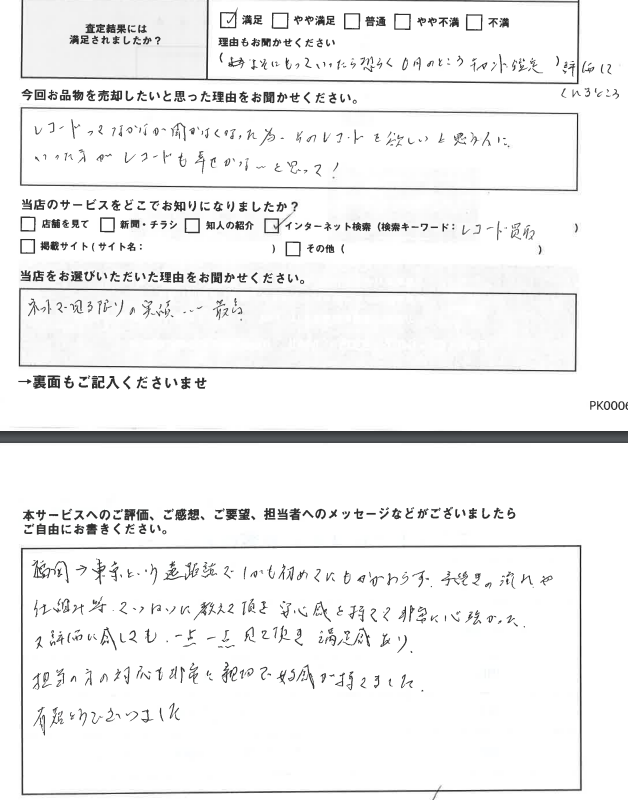 査定結果には
満足されましたか？
満足 やや満足 普通 やや不満 不満
理由もお聞かせください
もっていったら恐らく0円のところ チャント鑑定 ) 評価して
くれるところ
今回お品物を売却したいと思った理由をお聞かせください。
レコードってなかなか聞かなくなった為、そのレコードを欲しいと思う人に
いった方がレコードも幸せかな～と思って！
当店のサービスをどこでお知りになりましたか？
店舗を見て 新聞・チラシ 知人の紹介 インターネット検索（検索キーワード： レコード買取 ）
掲載サイト（サイト名： ） その他（ ）
当店をお選びいただいた理由をお聞かせください。
ネットで見る限りの実績…
→裏面もご記入くださいませ
PK0006
本サービスへのご評価、ご感想、ご要望、担当者へのメッセージなどがございましたら
ご自由にお書きください。
福岡→東京という遠距離でしかも初めてにもかかわらず、手続きの流れや
仕組み等、ていねいに教えて頂き安心感を持てて非常に心強かった。
又評価に関しても、一点一点見て頂き満足感あり。
担当の方の対応も非常に親切で好感が持てました。
有難うございました